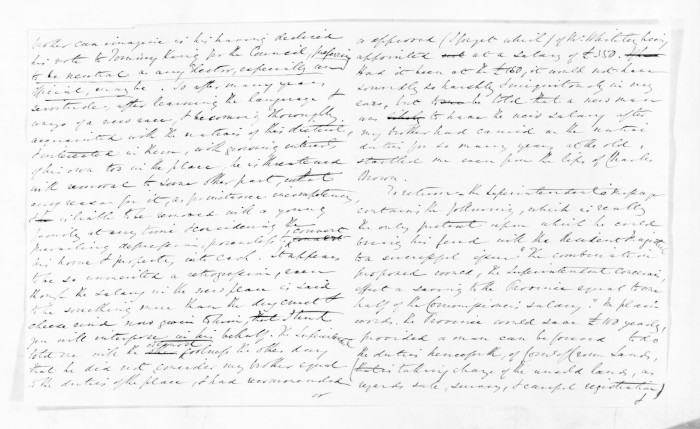 brother can imagine is his having declined
his vote to Tommy King for the Council, preferring
to be neutral as any Elector, especially an
Official, may be. So after many years
servitude, after learning the language &
ways of a new race, & becoming thoroughly
acquainted with the natives of this district,
& interested in them, with growing interests
of his own too in the place, he is threatened
with removal to some other part, what
any reason for it, as for instance incompetency,
& is liable to be removed with a young
family at any time & considering the
prevailing depression, powerless to convert
his house & property into cash. It appears
to me so unmerited a retrogression, even
though the salary in the new place is said
to be something more than the dry crust &
cheese rind now given to him that I trust
you will interpose in his behalf. The Superintendent
told me with the utmost coolness the other day
that he did not consider my brother equal
to the duties of the place, & had recommended
or
or approved (I forget which) of Mr Whitaker being
appointed at a salary of £350.
Had it been at the £160, it would not have
sounded so harshly & iniquitously in my
ears, but to be told that a new man
was to have the new salary after
my brother had carried on the united
duties for so many years at the old,
startled me even from the lips of Charles
Brown.
To return – the Superintendent's message
contains the following, which is really
the only pretext upon which he could
bring his feud with the Resident Magistrate
to a successful issue: "The combination
proposed would, the Superintendent conceives,
effect a saving to the Province equal to one
half of the Commissioners salary." In plain
words, the Province would save £100 yearly,
provided a man can be found to do
the duties henceforth of Comr of Crown Lands,
in taking charge of the unsold lands, as
regards sale, survey, & careful registration,